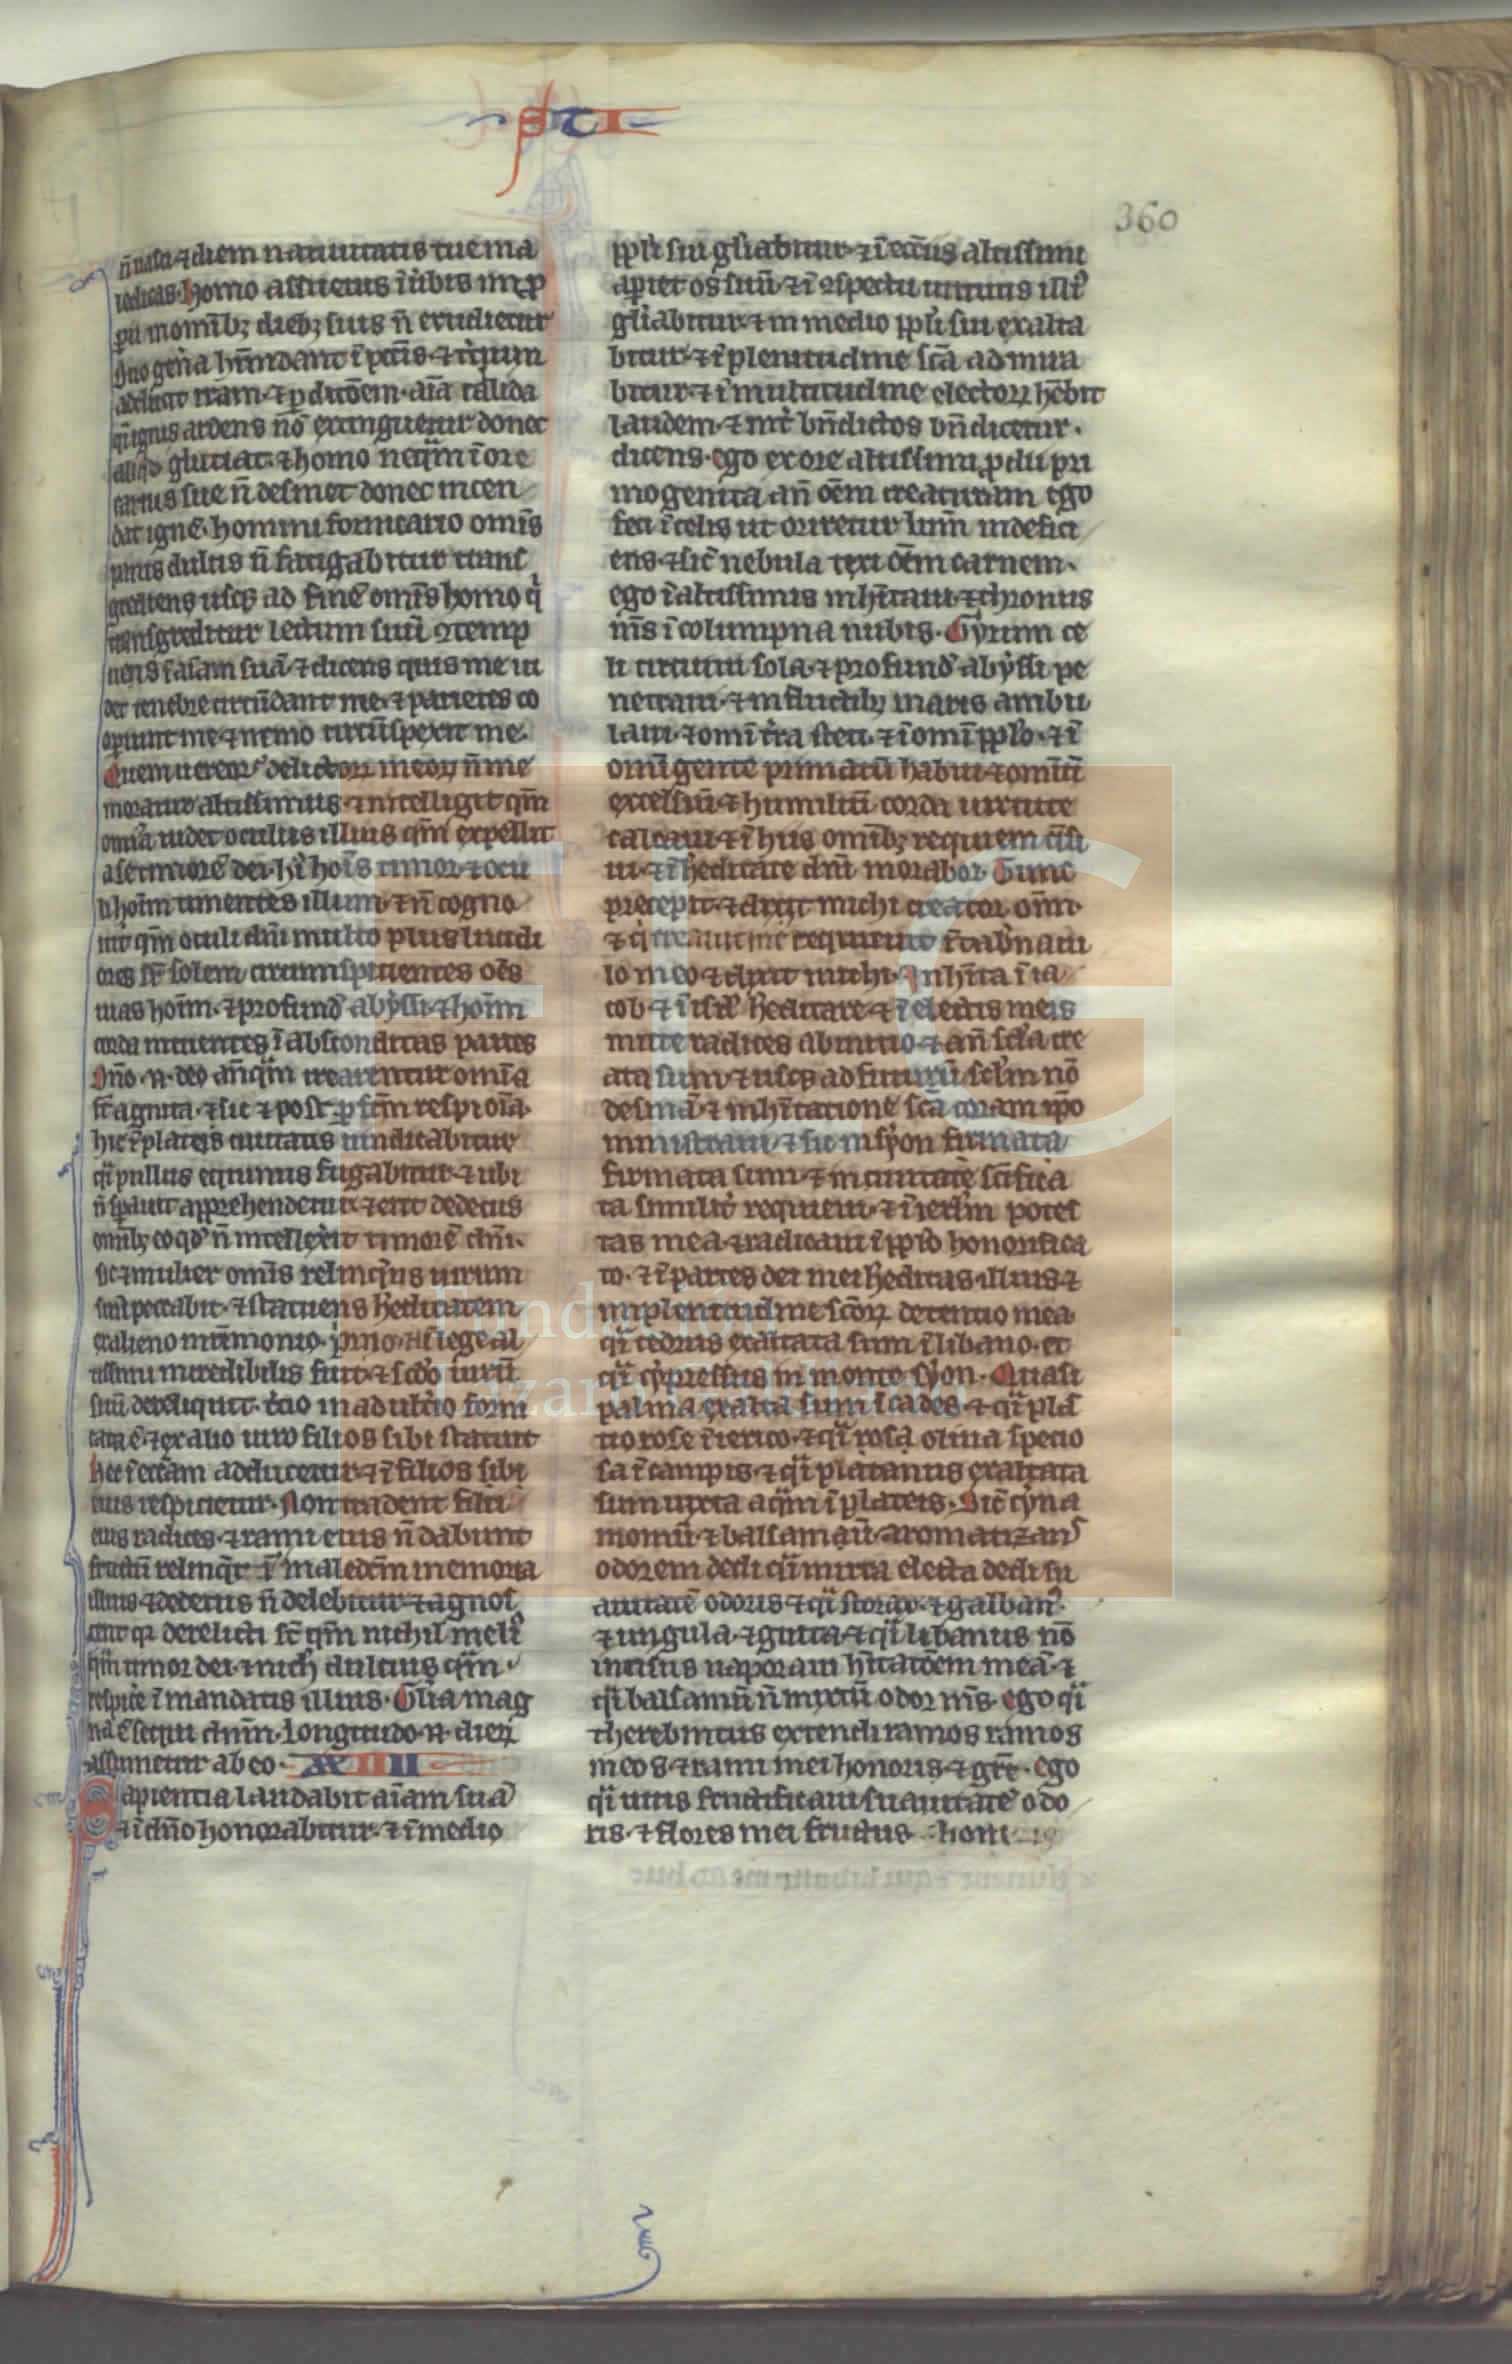 ꝑꞇı
360
n̄ nasci ⁊ diem natiuitatis tue ma
ledicas. Homo assuetus ī ūbis imp̱
ꝑii ī omīb; dieb; suis n̄ erudietur
Duo geña hūndant ī pc̄īs ⁊ t̄cium
adducit iram ⁊ ꝑditōem. aīa calida
q̄i ignis ardens nō extinguetur donec
aliq̇d glutiat. ⁊ homo neq̈m ī ore
carnis sue n̄ desinet donec incen
dat ignē. homini fornicario omīs
panis dulcis n̄ fatigabitur trans
grediens usq̨ ad finē omīs homo q̇
transgreditur lectum suū ꝯtemp
nens ī aīam suā ⁊ dicens quis me ui
det tenebre circūdant me ⁊ parietes co
opiunt me ⁊ nemo circūspexit me.
Quem uereor delictoꝝ meoꝝ n̄ me
morabitur altissimus ⁊ intelligit qm̄
omīa uidet oculus illius qm̄ expellit
a se timorē dei. h'i hoīs timor ⁊ ocu
li hoīm timentes illum ⁊ n̄ cogno
uit qm̄ oculi dn̄i multo plus lucidi
ores s̄t solem circumspicientes oēs
uias hoīm. ⁊ profund' abẏssi ⁊ hoīm
corda intuentes ī absconditas partes
Dn̄o .n. deo anq̈m crearentur omīa
st̄ agnita. ⁊ sic ⁊ post ꝑfc̄m respi oīa.
hic ī plateis ciuitatis uindicabitur
q̈i pullus equinus fugabitur ⁊ ubi
n̄ sꝑauit apprehendetur ⁊ erit dedecus
omīb; eo qd' n̄ intellexit timorē dn̄i.
sic ⁊ mulier omīs relinq̄ns uirum
suū peccabit. ⁊ statuens hēditatem
ex alieno mr̄imonio. p'mo .n. ī lege al
tissimi incredibilis fuit. ⁊ scd'o uirū
suū dereliquit. t'cio in adult'io forni
cata ē ⁊ ex alio uiro filios sibi statuit
hec ī ecc̄am adducetur ⁊ ī filios sibi
eius respicietur. Non tradent filii
eius radices. ⁊ rami eius n̄ dabunt
fructū relinq̄t ī maledcm̄ memoria
illius ⁊ dedecus n̄ delebitur ⁊ agnos
cent qi derelicti st̄ qm̄ nichil meli'
q̈m timor dei. ⁊ nich' dulcius q̈m
respic̄e ī mandatis illius. Gl'ia mag
na ē sequi dn̄m. longitudo .n. dieꝝ
assumetur ab eo. XXIIII
Sapientia laudabit aīam suā
⁊ ī dn̄o honorabitur. ⁊ ī medio
ppl'i sui gl'iabitur. ⁊ ī ecc̄iis altissimi
aꝑiet os suū ⁊ ī ꝯspectu uirtutis illi'
gl'iabitur. ⁊ in medio ppl'i sui exalta
bitur. ⁊ ī plenitudine sc̄a admira
bitur. ⁊ ī multitudine electoꝝ hēbit
laudem. ⁊ int' bn̄dictos bn̄dicetur.
dicens. ego ex ore altissimi ꝓdii pri
mogenita an̄ oēm creaturam ego
feci ī celis ut oriretur lum̄ indefici
ens. ⁊ sic̄ nebula texi oēm carnem.
ego ī altissimis inhītaui ⁊ thronus
m̄s ī columpna nubis. Gyrum ce
li circuiui sola. ⁊ profund' abẏssi pe
netraui. ⁊ in fluctib; maris ambu
laui. ⁊ omī t'ra steti. ⁊ ī omī ppl'o. ⁊ ī
omī gente primatū habui. ⁊ omīū
excelsiū ⁊ humiliū corda uirtute
calcaui. ⁊ ī hiis omīb; requiem q̄si
ui. ⁊ ī hēditate dn̄i morabor. Tunc
precepit. ⁊ dixit michi creator om̄
⁊ q̇ creauit me requieuit ī tab'nacu
lo meo ⁊ dixit michi. Inhīta ī ia
cob ⁊ ī isr̄l hēditare ⁊ ī electis meis
mitte radices ab initio ⁊ an̄ sc̄la cre
ata sum. ⁊ usq̨ ad futurū sc̄lm nō
desinā. ⁊ inhītatione sc̄a coram ip̄o
ministraui. ⁊ sic in sẏon firmata
firmata sum. ⁊ in ciuitate sc̄ifica
ta similit' requieui. ⁊ ī ierl'm potes
tas mea. ⁊ radicaui ī ppl'o honorifica
to. ⁊ ī partes dei mei hēditas illius ⁊
in plenitudine sc̄oꝝ detentio mea
q̈i cedrus exaltata sum ī libano. et
q̈i cẏpressus in monte sẏon. Quasi
palma exalta sum ī cades. ⁊ q̈i plā
tio rose ī ierico. ⁊ q̈i rosa oliua specio
sa ī campis. ⁊ q̈i platanus exaltata
sum iuxta aq̈m ī plateis. Sic̄ cẏna
momū ⁊ balsamaū. aromatizans
odorem dedi q̈i mirra electa dedi su
auitatē odoris ⁊ q̈i storax. ⁊ galban'
⁊ ungula. ⁊ gutta. ⁊ q̈i libanus nō
incisus uaporaui hītatōem meā. ⁊
q̈i balsamū n̄ mixtū odor m̄s. ego q̈i
therebintus extendi ramos ramos
meos. ⁊ rami mei honoris ⁊ gr̄e. ego
q̈i uitis fructificaui suauitatē odo
ris. ⁊ flores mei fructus honoris
FLG
Fundación
Lázaro Galdiano